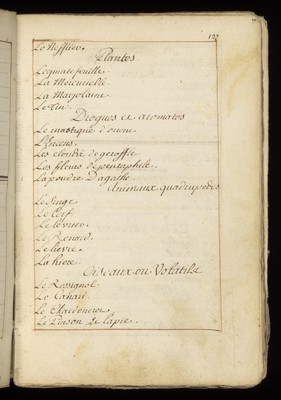 127
Le Nefflier.
Plantes
Le quinte feuille.
La Mercurielle.
La Marjolaine.
Le Tin.
Drogues et aromates
Le mastique
L'Encens.
Les cloudz de geroffle.
Les fleurs de
La poudre D'agathe.
Animaux quadrupedes
Le Singe.
Le Cerf.
Le levrier.
Le Renard.
Le lievre.
La hiene.
Oiseaux ou Volatils
Le Rossignol.
Le Canard.
Le Chardonnere.
Le Pinson La pie.